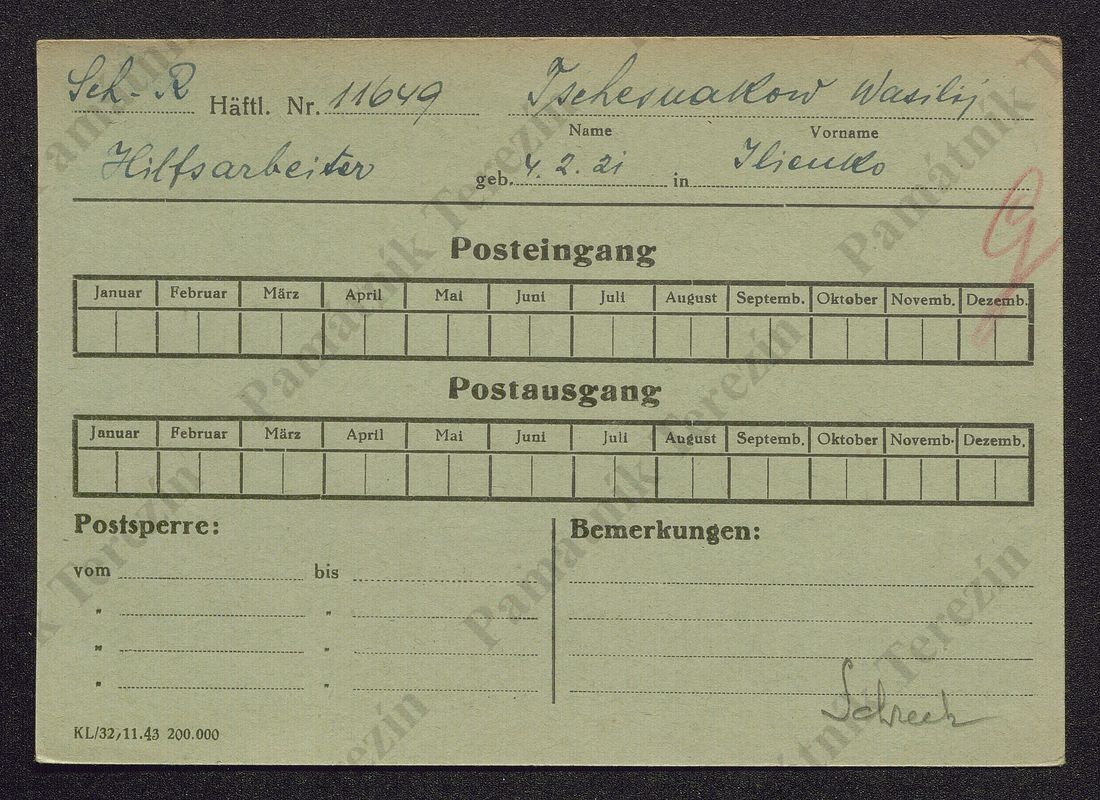 Sch.-R Häftl. Nr. 11649 Tschesnakow Wasilij
Name Vorname
Hilfsarbeiter geb. 4.2.21 in Ilienko
Posteingang
Januar Februar März April Mai Juni Juli August Septemb. Oktober Novemb. Dezemb.
Postausgang
Januar Februar März April Mai Juni Juli August Septemb. Oktober Novemb. Dezemb.
Postsperre: Bemerkungen:
vom bis
" "
" "
" "
Schreck
KL/32,11.43 200.000
Památník Terezín